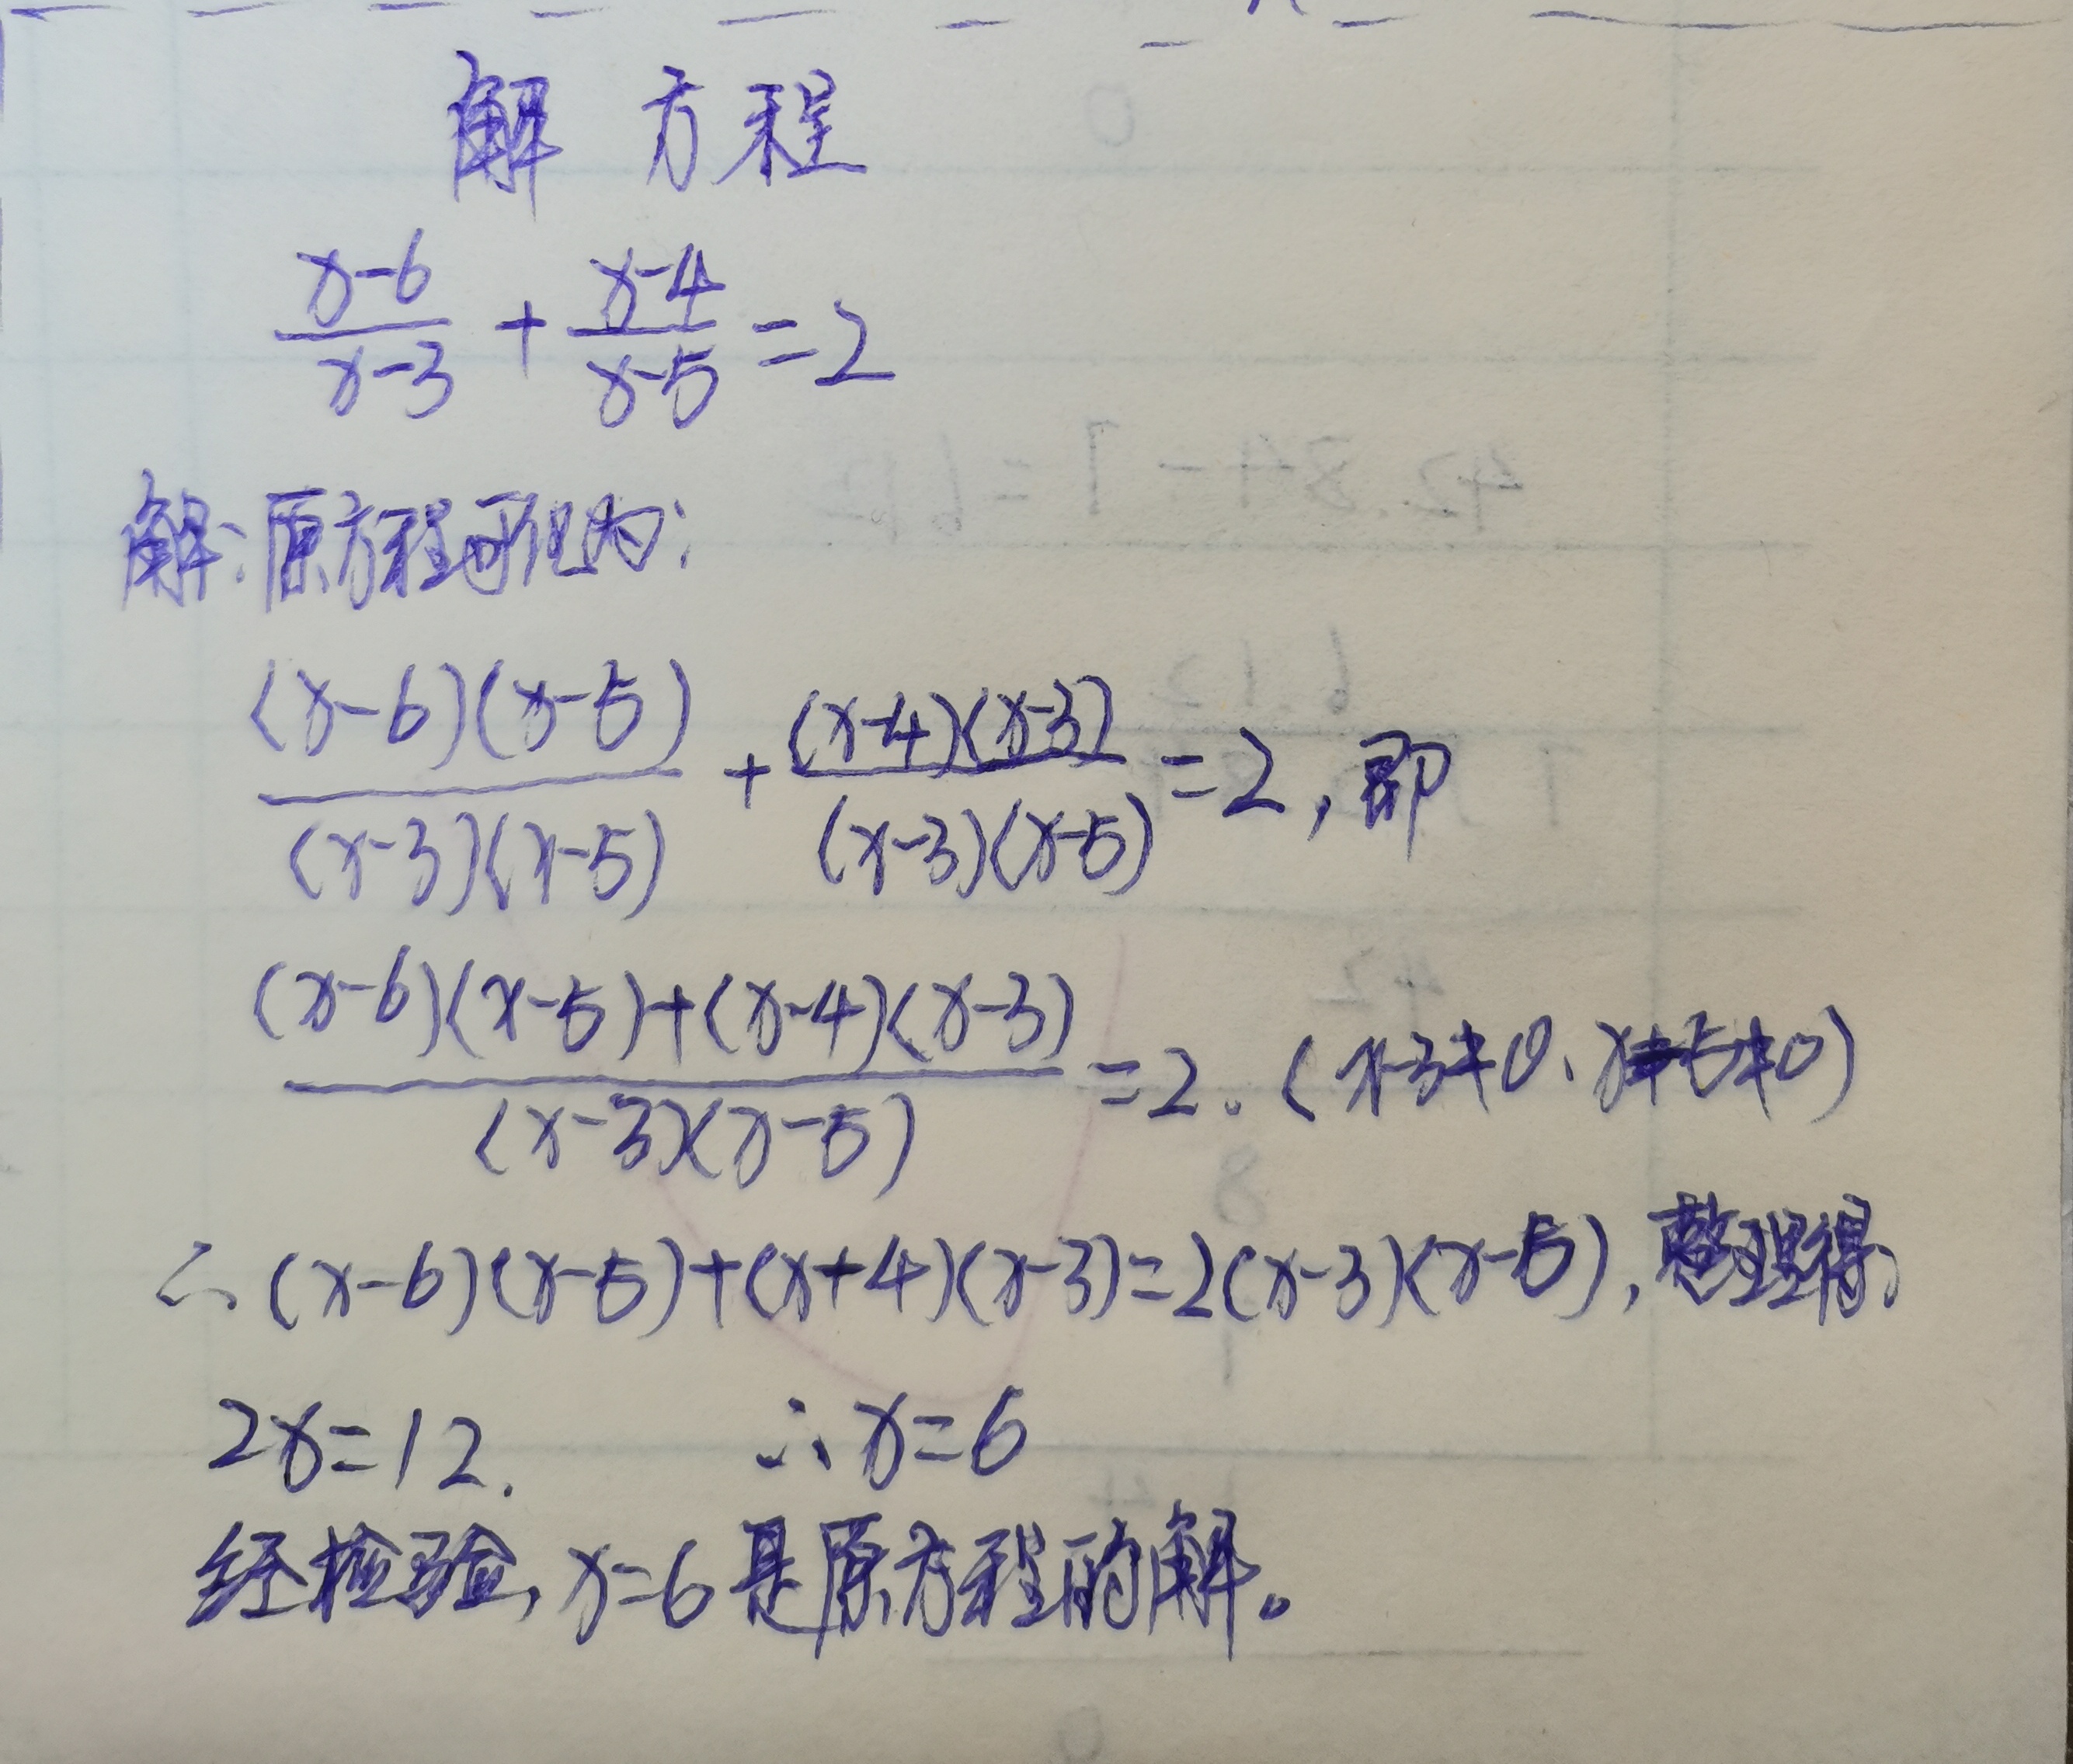 解 方程
(x-6)/(x-3) + (x-4)/(x-5) = 2
解:原方程可化为:
(x-6)(x-5)/(x-3)(x-5) + (x-4)(x-3)/(x-3)(x-5) = 2, 即
(x-6)(x-5)+(x-4)(x-3)/(x-3)(x-5) = 2. (x-3≠0、x-5≠0)
∴(x-6)(x-5)+(x+4)(x-3)=2(x-3)(x-5), 整理得、
2x=12. ∴x=6
经检验, x=6是原方程的解。